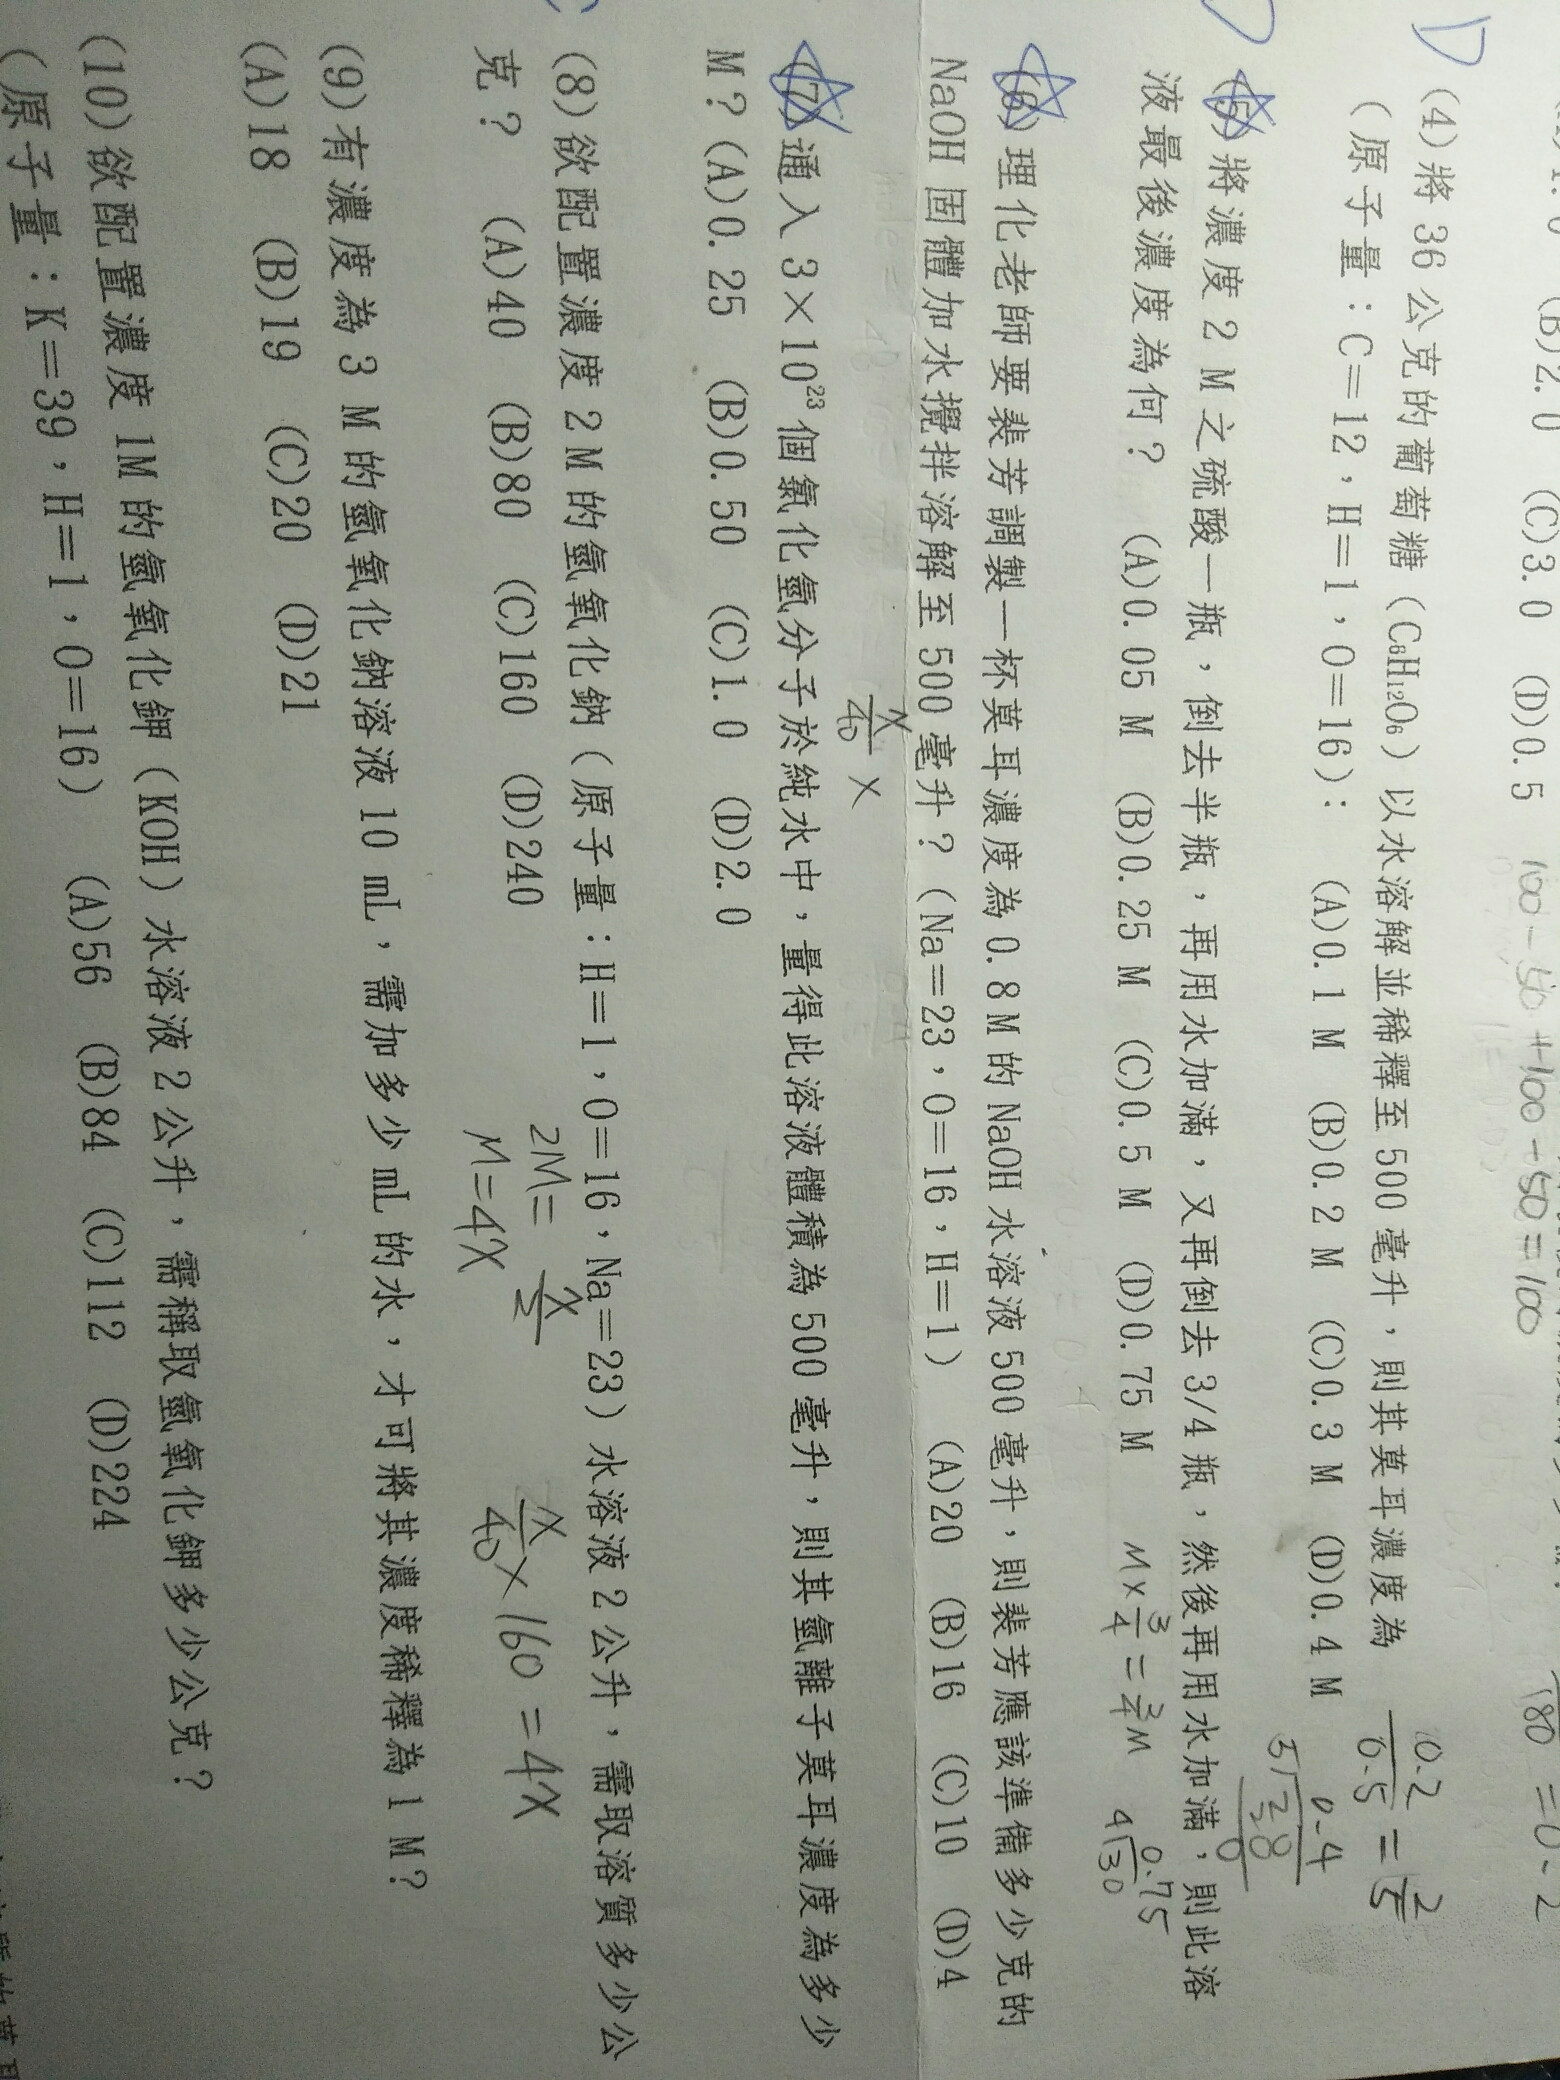 (B)2.0 (C)3.0 (D)0.5 100-50+100-50=100
180 =0.2
D (4)將 36 公克的葡萄糖(C6H12O6)以水溶解並稀釋至 500 毫升,則其莫耳濃度為
(原子量:C=12,H=1,O=16): (A)0.1 M (B)0.2 M (C)0.3 M (D)0.4 M
0.2/0.5=2/5
0.4
5√20
20
0
(5)將濃度 2 M 之硫酸一瓶,倒去半瓶,再用水加滿,又再倒去 3/4 瓶,然後再用水加滿,則此溶
液最後濃度為何? (A)0.05 M (B)0.25 M (C)0.5 M (D)0.75 M
M×3/4=3/4M
0.75
4√30
(6)理化老師要裴芳調製一杯莫耳濃度為 0.8M 的 NaOH 水溶液 500 毫升,則裴芳應該準備多少克的
NaOH 固體加水攪拌溶解至 500 毫升?(Na=23,O=16,H=1) (A)20 (B)16 (C)10 (D)4
x/40 ×
(7)通入 3×10²³個氯化氫分子於純水中,量得此溶液體積為 500 毫升,則其氫離子莫耳濃度為多少
M?(A)0.25 (B)0.50 (C)1.0 (D)2.0
(8)欲配置濃度 2M 的氫氧化鈉(原子量:H=1,O=16,Na=23)水溶液 2 公升,需取溶質多少公
克? (A)40 (B)80 (C)160 (D)240
2M=x/2
M=4x
x/40×160=4x
(9)有濃度為 3 M 的氫氧化鈉溶液 10 mL,需加多少 mL 的水,才可將其濃度稀釋為 1 M?
(A)18 (B)19 (C)20 (D)21
(10)欲配置濃度 1M 的氫氧化鉀(KOH)水溶液 2 公升,需稱取氫氧化鉀多少公克?
(原子量:K=39,H=1,O=16) (A)56 (B)84 (C)112 (D)224